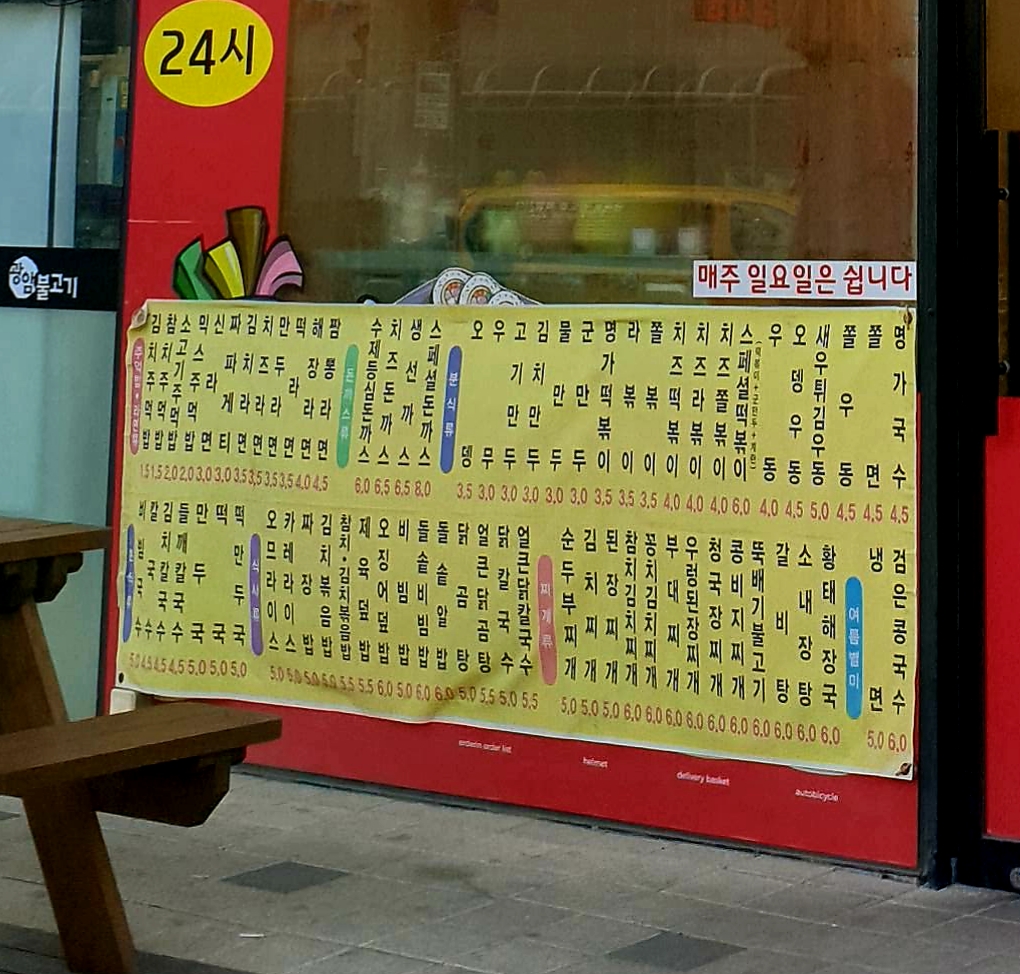 24시
광암불고기
매주 일요일은 쉽니다
주먹밥·라면류
김치주먹밥 1.5
참치주먹밥 1.5
소고기주먹밥 2.0
믹스주먹밥 2.0
신라면 3.0
짜파게티 3.0
김치라면 3.5
치즈라면 3.5
만두라면 3.5
떡라면 3.5
해장라면 4.0
짬뽕라면 4.5
돈까스류
수제등심돈까스 6.0
치즈돈까스 6.5
생선까스 6.5
스페셜돈까스 8.0
분식류
오뎅 3.5
우무 3.0
고기만두 3.0
김치만두 3.0
물만두 3.0
군만두 3.0
명가떡볶이 3.5
라볶이 3.5
쫄볶이 3.5
치즈떡볶이 4.0
치즈라볶이 4.0
치즈쫄볶이 4.0
스페셜떡볶이 (떡볶이+군만두+계란) 6.0
우동 4.0
오뎅우동 4.5
새우튀김우동 5.0
쫄우동 4.5
쫄면 4.5
명가국수 4.5
분식류
비빔국수 5.0
칼국수 4.5
김치칼국수 4.5
들깨칼국수 4.5
만두국 5.0
떡국 5.0
떡만두국 5.0
식사류
오므라이스 5.0
카레라이스 5.0
짜장밥 5.0
김치볶음밥 5.0
참치·김치볶음밥 5.5
제육덮밥 5.5
오징어덮밥 6.0
비빔밥 5.0
돌솥비빔밥 6.0
돌솥알밥 6.0
닭곰탕 5.0
얼큰닭곰탕 5.5
닭칼국수 5.0
얼큰닭칼국수 5.5
찌개류
순두부찌개 5.0
김치찌개 5.0
된장찌개 5.0
참치김치찌개 6.0
꽁치김치찌개 6.0
부대찌개 6.0
우렁된장찌개 6.0
청국장찌개 6.0
콩비지찌개 6.0
뚝배기불고기 6.0
갈비탕 6.0
소내장탕 6.0
황태해장국 6.0
여름별미
냉면 5.0
검은콩국수 6.0
enterim order list
helmet
delivery basket
autobicycle